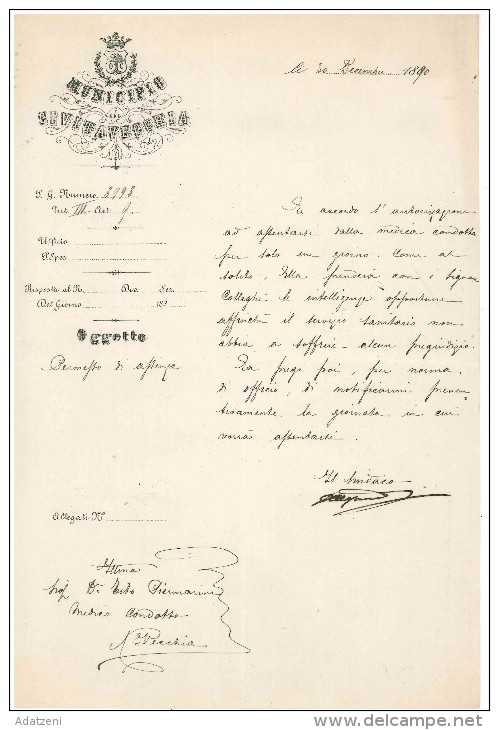 MUNICIPIO
DI
CIVITAVECCHIA
A 30 Decembre 1890
P. G. Numero 2998
Tit. III Art. 9.
Ufficio
P. Spec.
Risposta al N. Div. Sez.
Del Giorno 189
Oggetto
Permesso di assenza
Le accordo l'autorizzazione
ad assentarsi dalla medica condotta
per solo un giorno. Come al
solito, Ella prenderà con i Signori
Colleghi le intelligenze opportune
affinchè il servizio sanitario non
abbia a soffrire alcun pregiudizio.
La prego poi, per norma
di officio, di notificarmi preven=
tivamente la giornata in cui
vorrà assentarsi.
Il Sindaco
Allegati N.
Sig. Dr. Piermarini
Medico Condotto
Vecchia
Adatzeni
delcampe.net